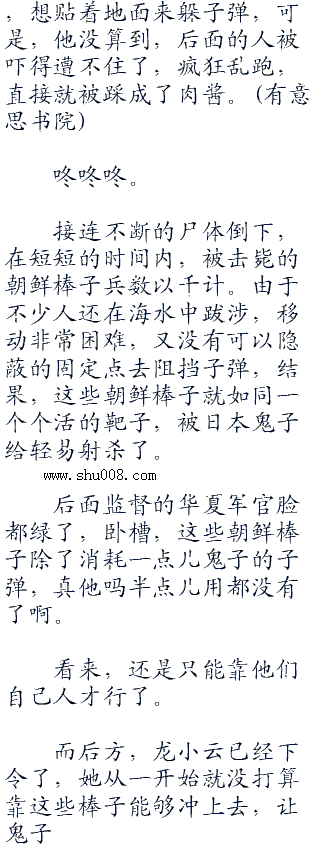 ，想贴着地面来躲子弹，可
是，他没算到，后面的人被
吓得遭不住了，疯狂乱跑，
直接就被踩成了肉酱。(有意
思书院)
咚咚咚。
接连不断的尸体倒下，
在短短的时间内，被击毙的
朝鲜棒子兵数以千计。由于
不少人还在海水中跋涉，移
动非常困难，又没有可以隐
蔽的固定点去阻挡子弹，结
果，这些朝鲜棒子就如同一
个个活的靶子，被日本鬼子
给轻易射杀了。
www.shu008.com
后面监督的华夏军官脸
都绿了，卧槽，这些朝鲜棒
子除了消耗一点儿鬼子的子
弹，真他吗半点儿用都没有
了啊。
看来，还是只能靠他们
自己人才行了。
而后方，龙小云已经下
令了，她从一开始就没打算
靠这些棒子能够冲上去，让
鬼子